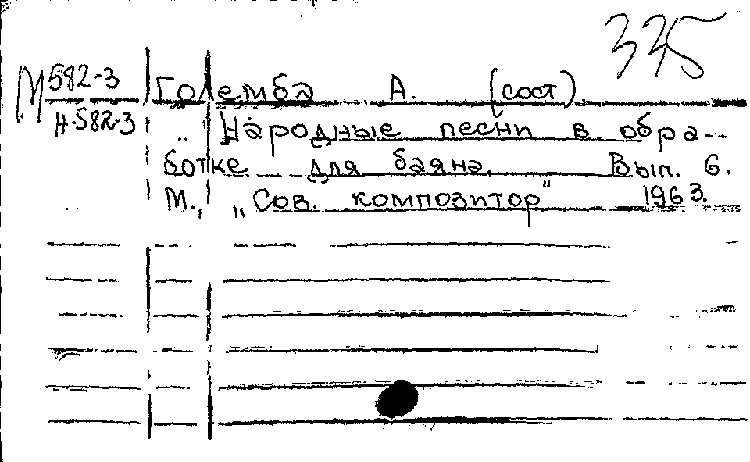 335
М 582-3
Н-582-3
Големба А. (сост)
„Народные песни в обра-
ботке для баяна. Вып. 6.
М., „Сов. композитор" 1963.